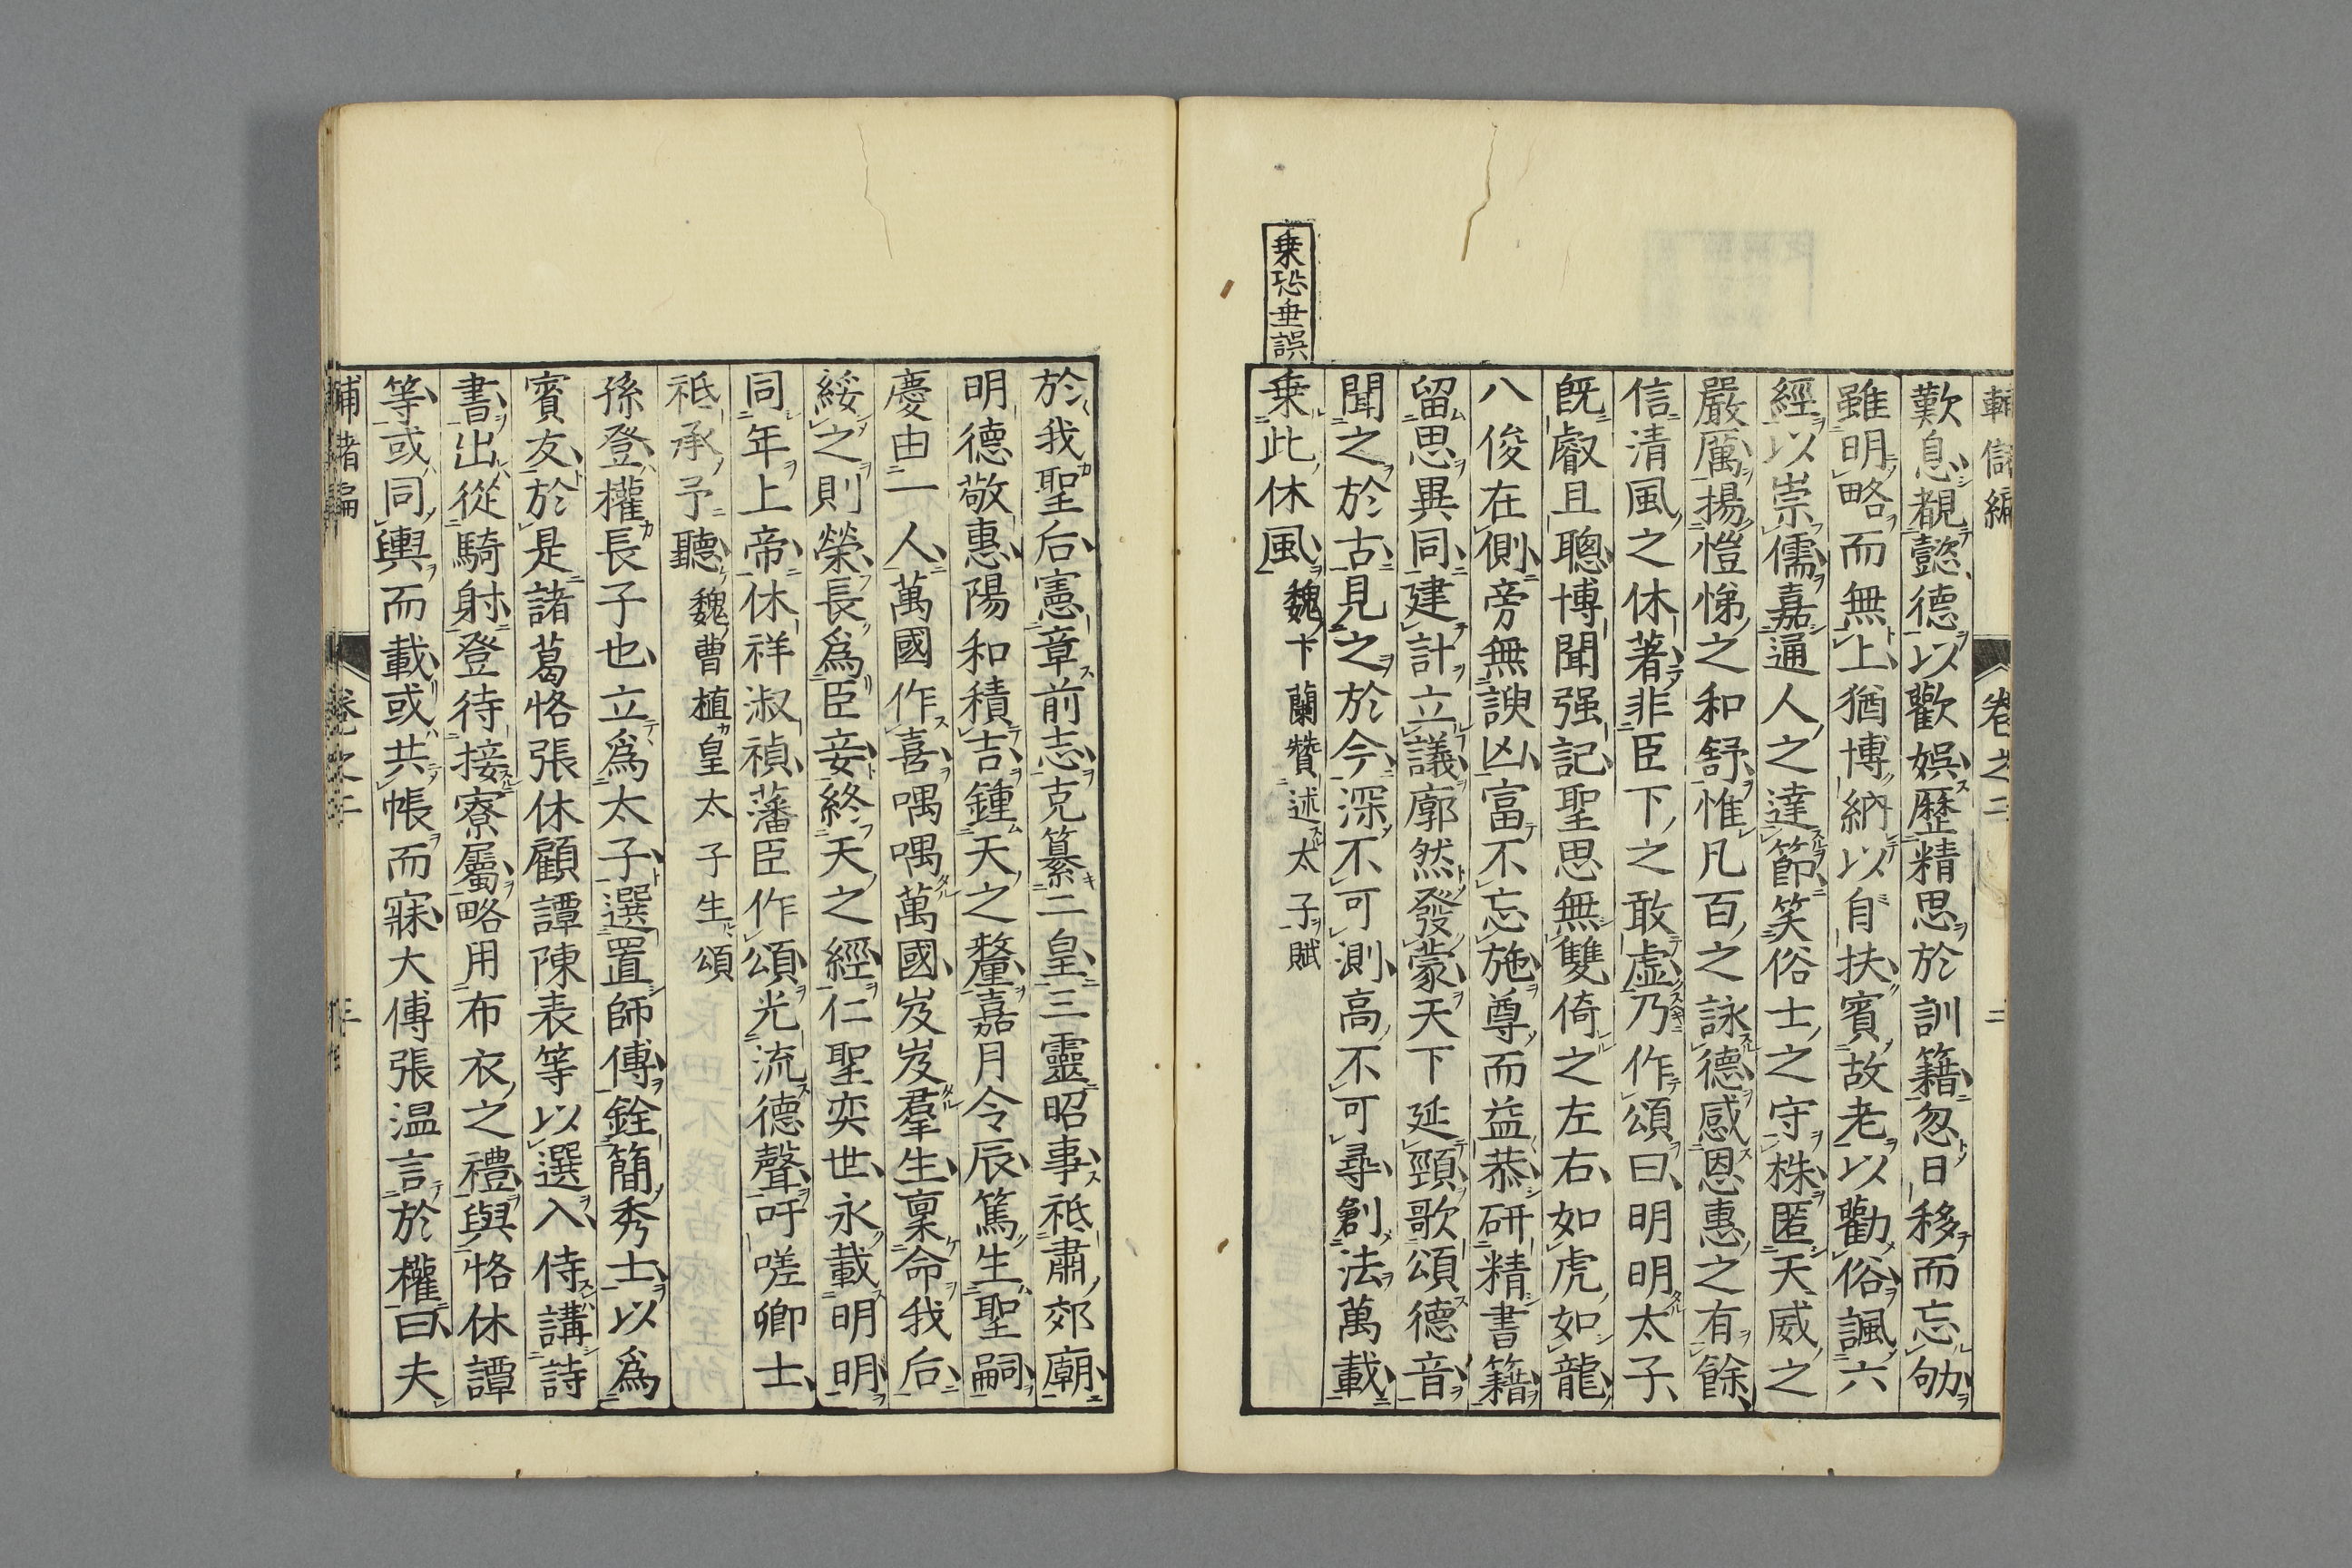 輔儲編 卷之二 二
歎息覩懿德以歡娯歷精思於訓籍忽日移而忘劬
雖明略而無上猶博納以自扶賓故老以勸俗諷六
經以崇儒嘉通人之達節笑俗士之守株匿天威之
嚴厲揚愷悌之和舒惟凡百之詠德感恩惠之有餘
信清風之休著非臣下之敢虚乃作頌曰明明太子
旣叡且聰博聞强記聖思無雙倚之左右如虎如龍
八俊在側旁無諛凶富不忘施尊而益恭研精書籍
留思異同建計立議廓然發蒙天下延頸歌頌德音
聞之於古見之於今深不可測高不可尋創法萬載
乗恐垂誤
乗此休風 魏卞蘭贊述太子賦
於我聖后憲章前志克纂二皇三靈昭事祗肅郊廟
明德敬惠陽和積吉鍾天之釐嘉月令辰篤生聖嗣
慶由一人萬國作喜喁喁萬國岌岌羣生稟命我后
綏之則榮長爲臣妾終天之經仁聖奕世永載明明
同年上帝休祥淑禎藩臣作頌光流德聲吁嗟卿士
祗承予聽 魏曹植皇太子生頌
孫登權長子也立爲太子選置師傅銓簡秀士以爲
賓友於是諸葛恪張休顧譚陳表等以選入侍講詩
書出從騎射登待接寮屬略用布衣之禮與恪休譚
等或同輿而載或共帳而寐大傅張温言於權曰夫